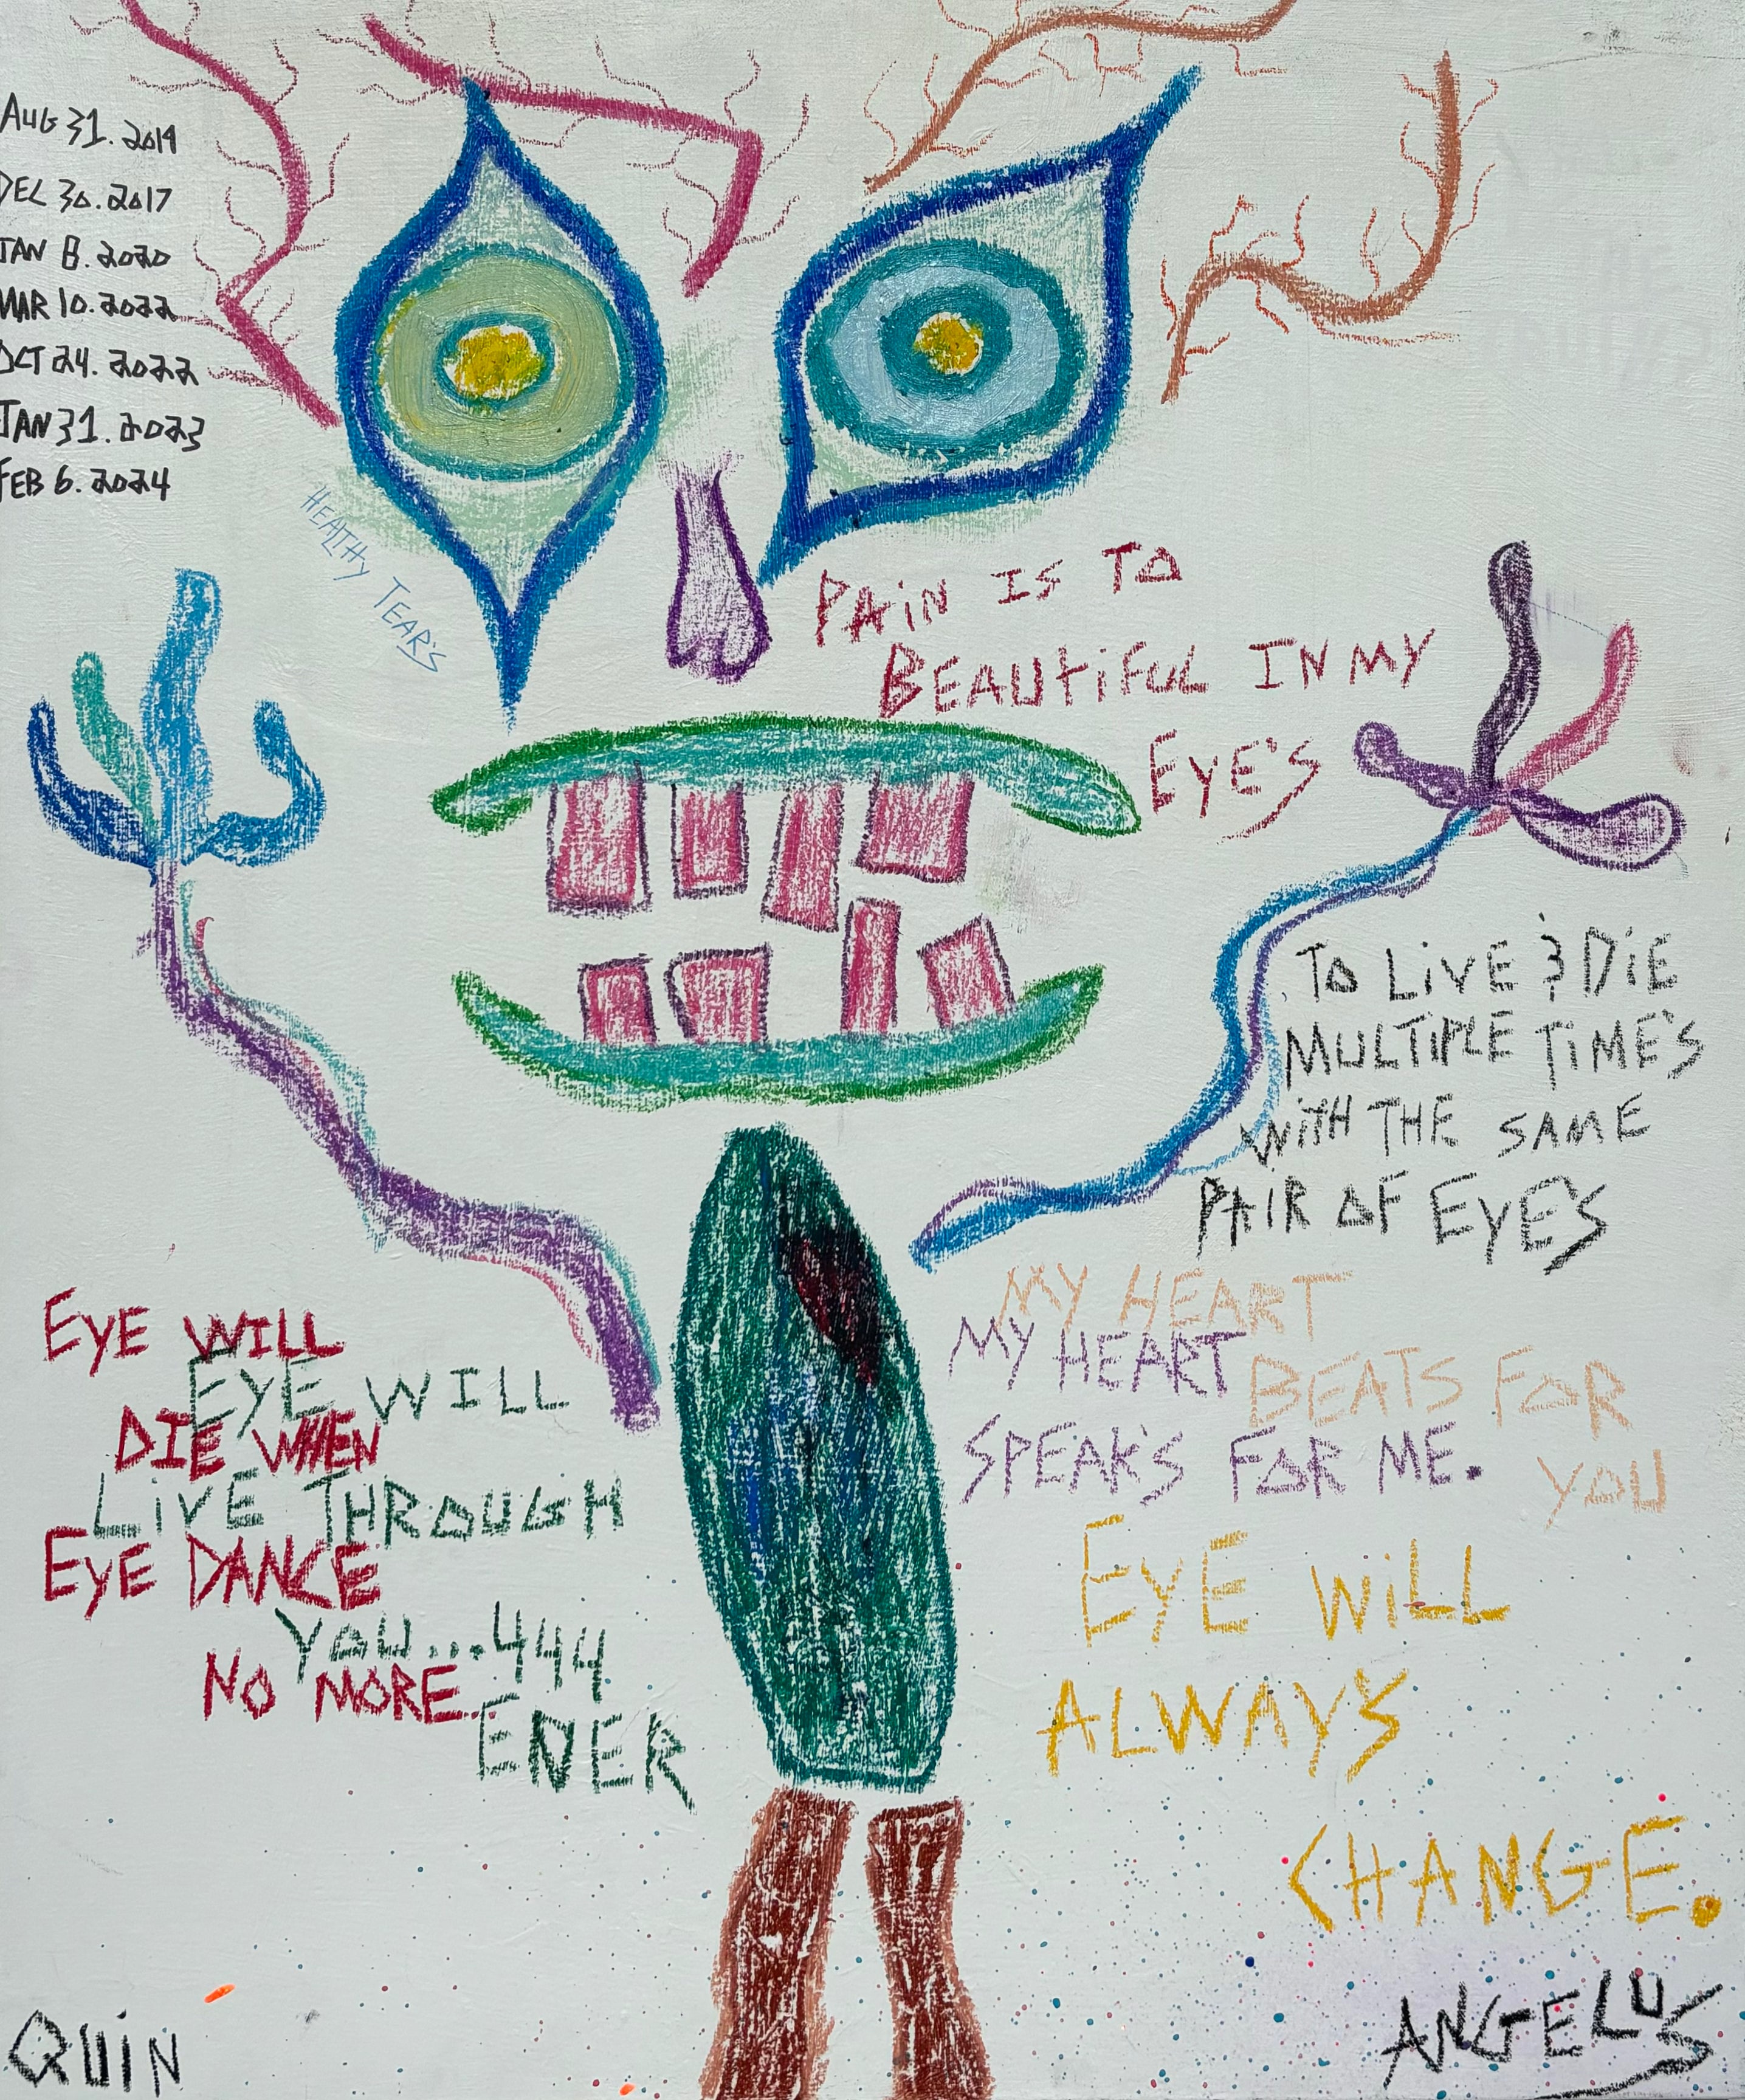 AUG 31. 2019
DEC 30. 2017
JAN 8. 2020
MAR 10. 2022
OCT 24. 2022
JAN 31. 2023
FEB 6. 2024
HEALTHY TEAR'S
PAiN IS TO
BEAUTiFUL IN MY
EYE'S
TO LiVE & DiE
MULTiPLE TiME'S
WiTH THE SAME
PAIR OF EYE'S
MY HEART
BEATS FOR
YOU
MY HEART
SPEAK'S FOR ME.
EYE WILL
DIE WHEN
EYE DANCE
NO MORE...
EYE WILL
LiVE THROUGH
YOU...444
ENER
EYE WiLL
ALWAYS
CHANGE.
QUiN
ANGELUS